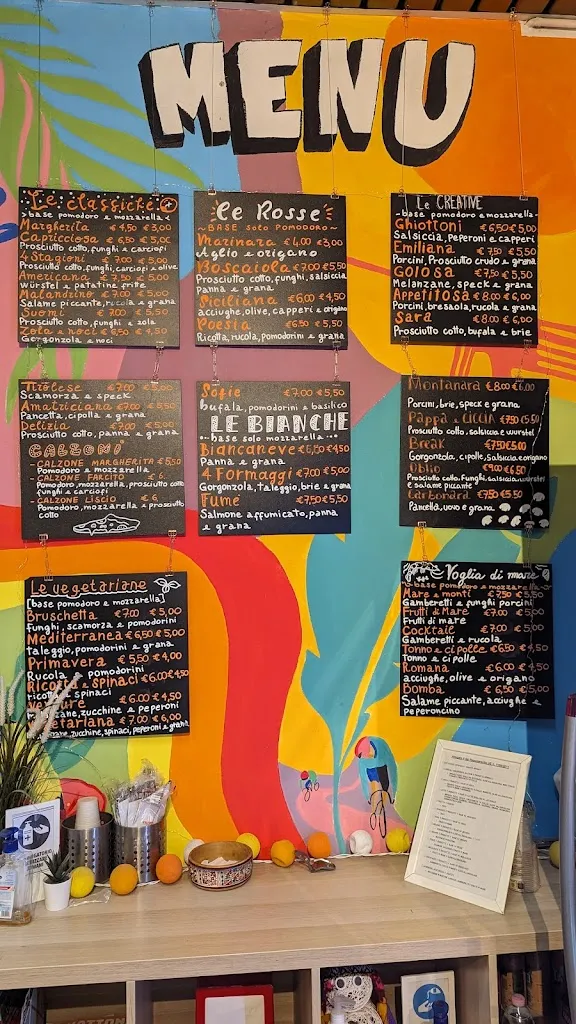 MENU
Le classiche
>base pomodoro e mozzarella<
Margherita € 4,50 €3,00
Capricciosa € 6,50 €5,00
Prosciutto cotto, funghi e carciofi
4 Stagioni € 7.00 € 5,00
Prosciutto cotto, funghi, carciofi e olive
Americana € 7,50 € 5,00
würstel e patatine fritte
Malandrino €7.00 € 5,50
Salame piccante, rucola e grana
Suomi € 7.00 € 5,50
Prosciutto cotto, funghi e zola
Zola e noci € 6,50 € 4,50
Gorgonzola e noci
Tirolese €7.00 €5,00
Scamorza e speck
Amatriciana €7.00 €5,50
Pancetta, cipolla e grana
Delizia €7.00 €5,50
Prosciutto cotto, panna e grana
CALZONI
- CALZONE MARGHERITA €5,50
Pomodoro e mozzarella
- CALZONE FARCITO € 6.
Pomodoro, mozzarella, prosciutto cotto
funghi e carciofi
- CALZONE LISCIO € 6.
Pomodoro, mozzarella e prosciutto
cotto
Le vegetariane
[base pomodoro e mozzarella]
Bruschetta €7.00 € 5,00
funghi, scamorza e pomodorini
Mediterranea €6,50 €5,00
taleggio, pomodorini e grana
Primavera € 5,50 €4,00
Rucola e pomodorini
Ricotta e spinaci €6.00 €4,50
ricotta e spinaci
€6.00 €4,50
zucchine e peperoni
€7.00 € 6,00
zucchine, spinaci, peperoni e grana
Le Rosse
~BASE solo POMODORO~
Marinara €4,00 €3,00
Aglio e origano
Boscaiola €7.00 €5,50
Prosciutto cotto, funghi, salsiccia
panna e grana
Siciliana €6.00 € 4,50
acciughe, olive, capperi e origano
Poesia € 6,50 € 5,50
Ricotta, rucola, pomodorini e grana
Sofie €7.00 €5,50
bufala, pomodorini e basilico
LE BIANCHE
base solo mozzarella
Biancaneve €6,50 €4,50
Panna e grana
4 Formaggi €7.00 €5,00
Gorgonzola, taleggio, brie e grana
Fume €7,50 €5,50
Salmone affumicato, panna
e grana
Le CREATIVE
-base pomodoro e mozzarella-
Ghiottoni €6,50 €5,00
Salsiccia, Peperoni e capperi
Emiliana € 7,50 € 5,50
Porcini, Prosciutto crudo e grana
Golosa € 7,50 € 5,50
Melanzane, speck e grana
Appetitosa €8.00 €6,00
Porcini, bresaola, rucola e grana
Sara €8.00 € 6,00
Prosciutto cotto, bufala e brie
Montanara €8.00 €6.00
Porcini, brie, speck e grana
Pappa e CICCIA €7,50 €5,50
Prosciutto cotto, salsiccia e wurstel
Break €7,50 €5,00
Gorgonzola, cipolle, Salsiccia e origano
Oblio €9.00 €6,50
Prosciutto cotto, Funghi, salsiccia, wurstel
e salame piccante
Carbonara €7,50 €5,50
Pancetta, uovo e grana
Voglia di mare
-base pomodoro e mozzarella-
Mare e monti €7,50 €5,50
Gamberetti e funghi porcini
Frutti di Mare €7.00 €5,00
Frutti di mare
Cocktail €7.00 €5,00
Gamberetti e rucola
Tonno e cipolle €6,50 € 4,50
Tonno e cipolle
Romana €6.00 € 4,50
acciughe, olive e origano
Bomba € 6,50 €5,00
Salame piccante, acciughe e
peperoncino